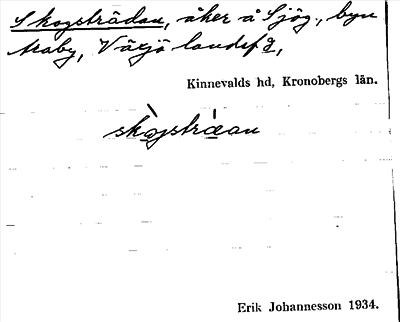 Skogsträdan, åker å Sjög., byn
Maby, Växjö landsfg,
Kinnevalds hd, Kronobergs län.
skogsträan
Erik Johannesson 1934.